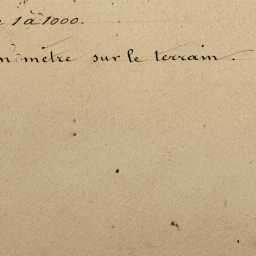 1 à 1000.
mètre sur le terrain.